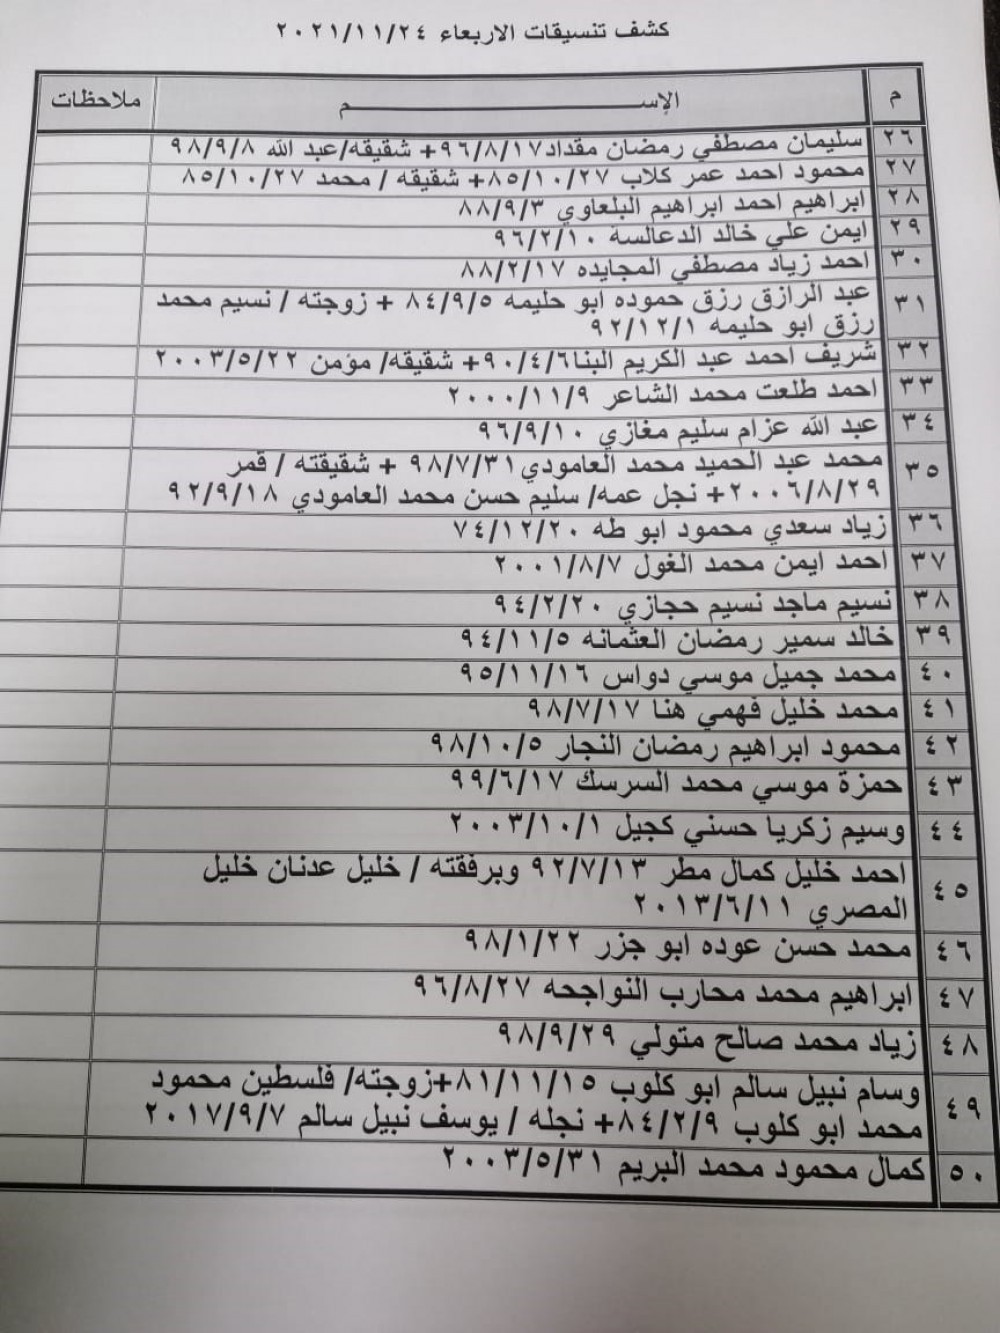 كشف تنسيقات الاربعاء ٢٠٢١/١١/٢٤
م الإســـــــم ملاحظات
٢٦ سليمان مصطفي رمضان مقداد٩٦/٨/١٧+ شقيقه/عبد الله ٩٨/٩/٨
٢٧ محمود احمد عمر كلاب ٨٥/١٠/٢٧+ شقيقه / محمد ٨٥/١٠/٢٧
٢٨ ابراهيم احمد ابراهيم البلعاوي ٨٨/٩/٣
٢٩ ايمن علي خالد الدعالسة ٩٦/٢/١٠
٣٠ احمد زياد مصطفي المجايده ٨٨/٢/١٧
٣١ عبد الرازق رزق حموده ابو حليمه ٨٤/٩/٥ + زوجته / نسيم محمد
رزق ابو حليمه ٩٢/١٢/١
٣٢ شريف احمد عبد الكريم البنا٩٠/٤/٦+ شقيقه/ مؤمن ٢٠٠٣/٥/٢٢
٣٣ احمد طلعت محمد الشاعر ٢٠٠٠/١١/٩
٣٤ عبد الله عزام سليم مغازي ٩٦/٩/١٠
٣٥ محمد عبد الحميد محمد العامودي٩٨/٧/٣١ + شقيقته / قمر
٢٠٠٦/٨/٢٩+ نجل عمه/ سليم حسن محمد العامودي ٩٢/٩/١٨
٣٦ زياد سعدي محمود ابو طه ٧٤/١٢/٢٠
٣٧ احمد ايمن محمد الغول ٢٠٠١/٨/٧
٣٨ نسيم ماجد نسيم حجازي ٩٤/٢/٢٠
٣٩ خالد سمير رمضان العثمانه ٩٤/١١/٥
٤٠ محمد جميل موسي دواس ٩٥/١١/١٦
٤١ محمد خليل فهمي هنا ٩٨/٧/١٧
٤٢ محمود ابراهيم رمضان النجار ٩٨/١٠/٥
٤٣ حمزة موسي محمد السرسك ٩٩/٦/١٧
٤٤ وسيم زكريا حسني كجيل ٢٠٠٣/١٠/١
٤٥ احمد خليل كمال مطر ٩٢/٧/١٣ وبرفقته / خليل عدنان خليل
المصري ٢٠١٣/٦/١١
٤٦ محمد حسن عوده ابو جزر ٩٨/١/٢٢
٤٧ ابراهيم محمد محارب النواجحه ٩٦/٨/٢٧
٤٨ زياد محمد صالح متولي ٩٨/٩/٢٩
٤٩ وسام نبيل سالم ابو كلوب ٨١/١١/١٥+زوجته/ فلسطين محمود
محمد ابو كلوب ٨٤/٢/٩+ نجله / يوسف نبيل سالم ٢٠١٧/٩/٧
٥٠ كمال محمود محمد البريم ٢٠٠٣/٥/٣١